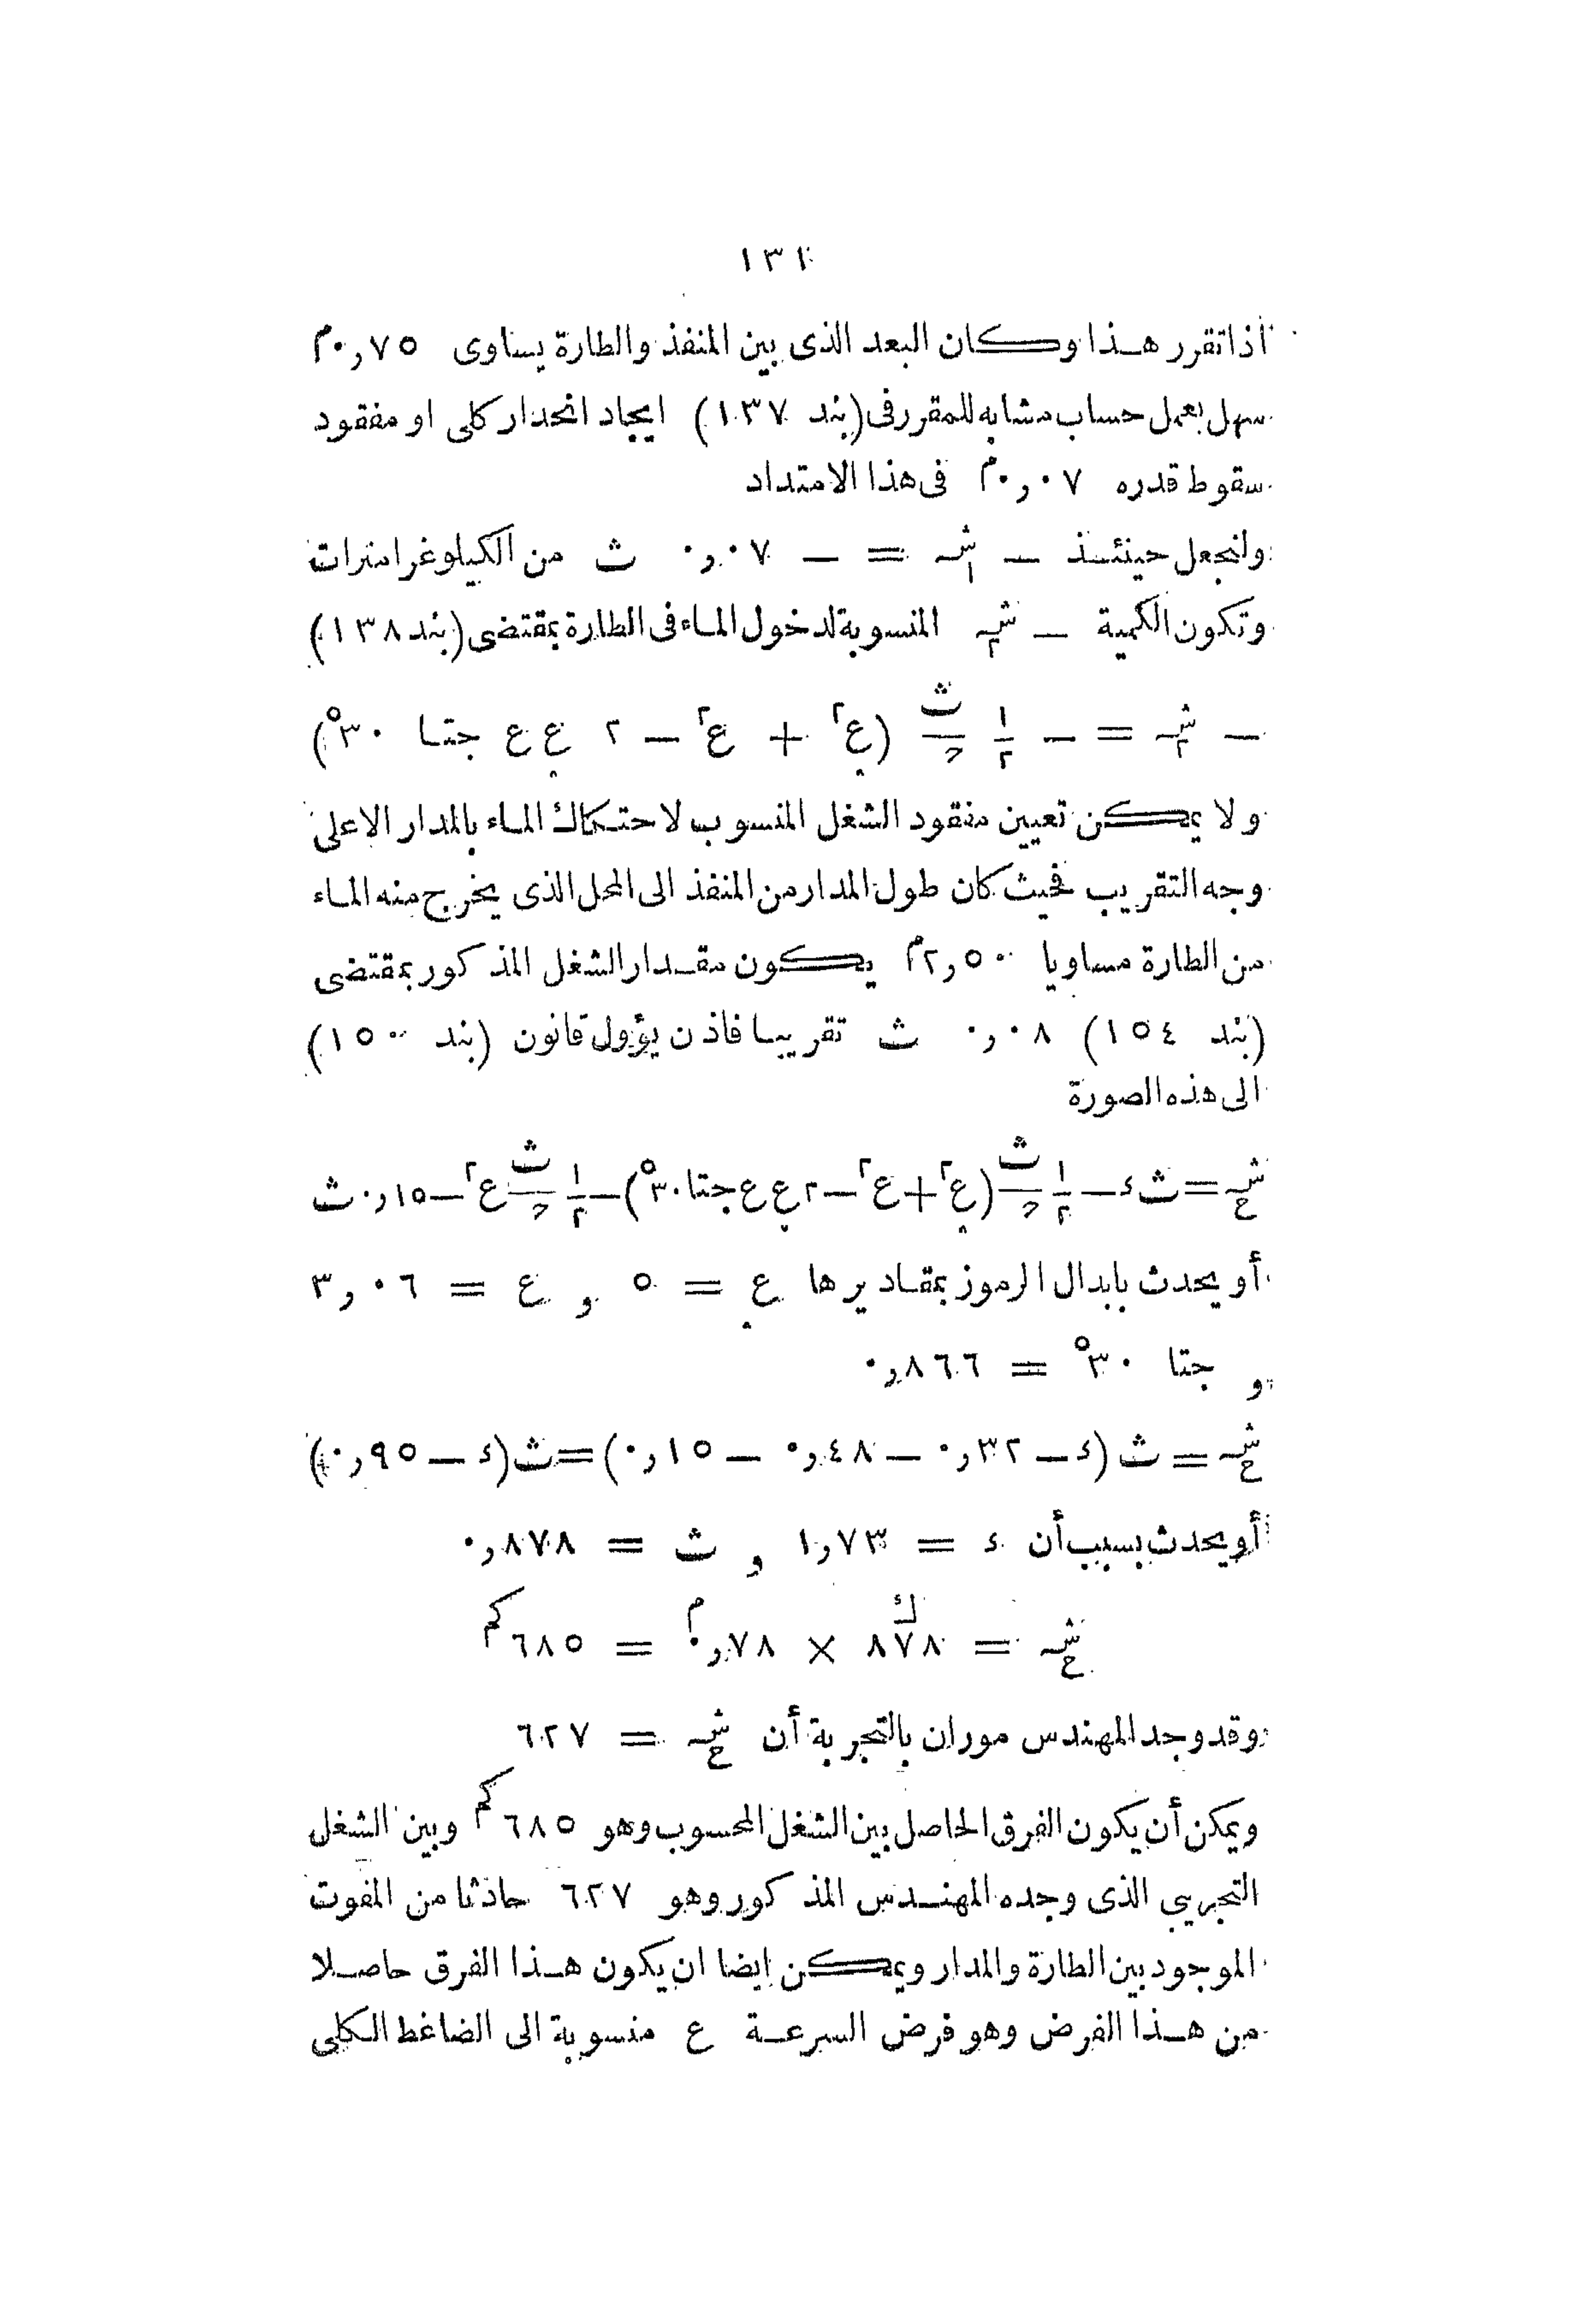 ١٣١
اذا تقرر هذا وكان البعد الذى بين المنفذ والطارة يساوى ٠,٧٥م
سهل بعمل حساب مشابه للمقرر فى (بند ١٣٧) ايجاد انحدار كلى او مفقود
سقوط قدره ٠,٠٧م فى هذا الامتداد
ولنجعل حينئذ — شـ١ = — ٠,٠٧ ث من الكيلوغرامترات
وتكون الكمية — شـ٢ المنسوبة لدخول الماء فى الطارة بمقتضى (بند ١٣٨)
— شـ٢ = — ١/٢ ث/ح (عٍ٢ + ع٢ — ٢ عٍ ع جتا ٣٠°)
ولا يمكن تعيين مفقود الشغل المنسوب لاحتكاك الماء بالمدار الاعلى
وجه التقريب فحيث كان طول المدار من المنفذ الى المحل الذى يخرج منه الماء
من الطارة مساويا ٢,٥٠م يكون مقدار الشغل المذكور بمقتضى
(بند ١٥٤) ٠,٠٨ ث تقريبا فاذن يؤول قانون (بند ١٥٠)
الى هذه الصورة
شـح = ث ء — ١/٢ ث/ح (عٍ٢ + ع٢ — ٢ عٍ ع جتا ٣٠°) — ١/٢ ث/ح ع٢ — ٠,١٥ ث
أو يحدث بابدال الرموز بمقاديرها عٍ = ٥ و ع = ٣,٠٦
و جتا ٣٠° = ٠,٨٦٦
شـح = ث (ء — ٠,٣٢ — ٠,٤٨ — ٠,١٥) = ث (ء — ٠,٩٥)
أو يحدث بسبب أن ء = ١,٧٣ و ث = ٠,٨٧٨
شـح = ٨٧٨ك × ٠,٧٨م = ٦٨٥كم
وقد وجد المهندس موران بالتجربة أن شـح = ٦٢٧
ويمكن أن يكون الفرق الحاصل بين الشغل المحسوب وهو ٦٨٥كم وبين الشغل
التجريبى الذى وجده المهندس المذكور وهو ٦٢٧ حادثا من المفوت
الموجود بين الطارة والمدار ويمكن ايضا ان يكون هذا الفرق حاصلا
من هذا الفرض وهو فرض السرعة ع منسوبة الى الضاغط الكلى